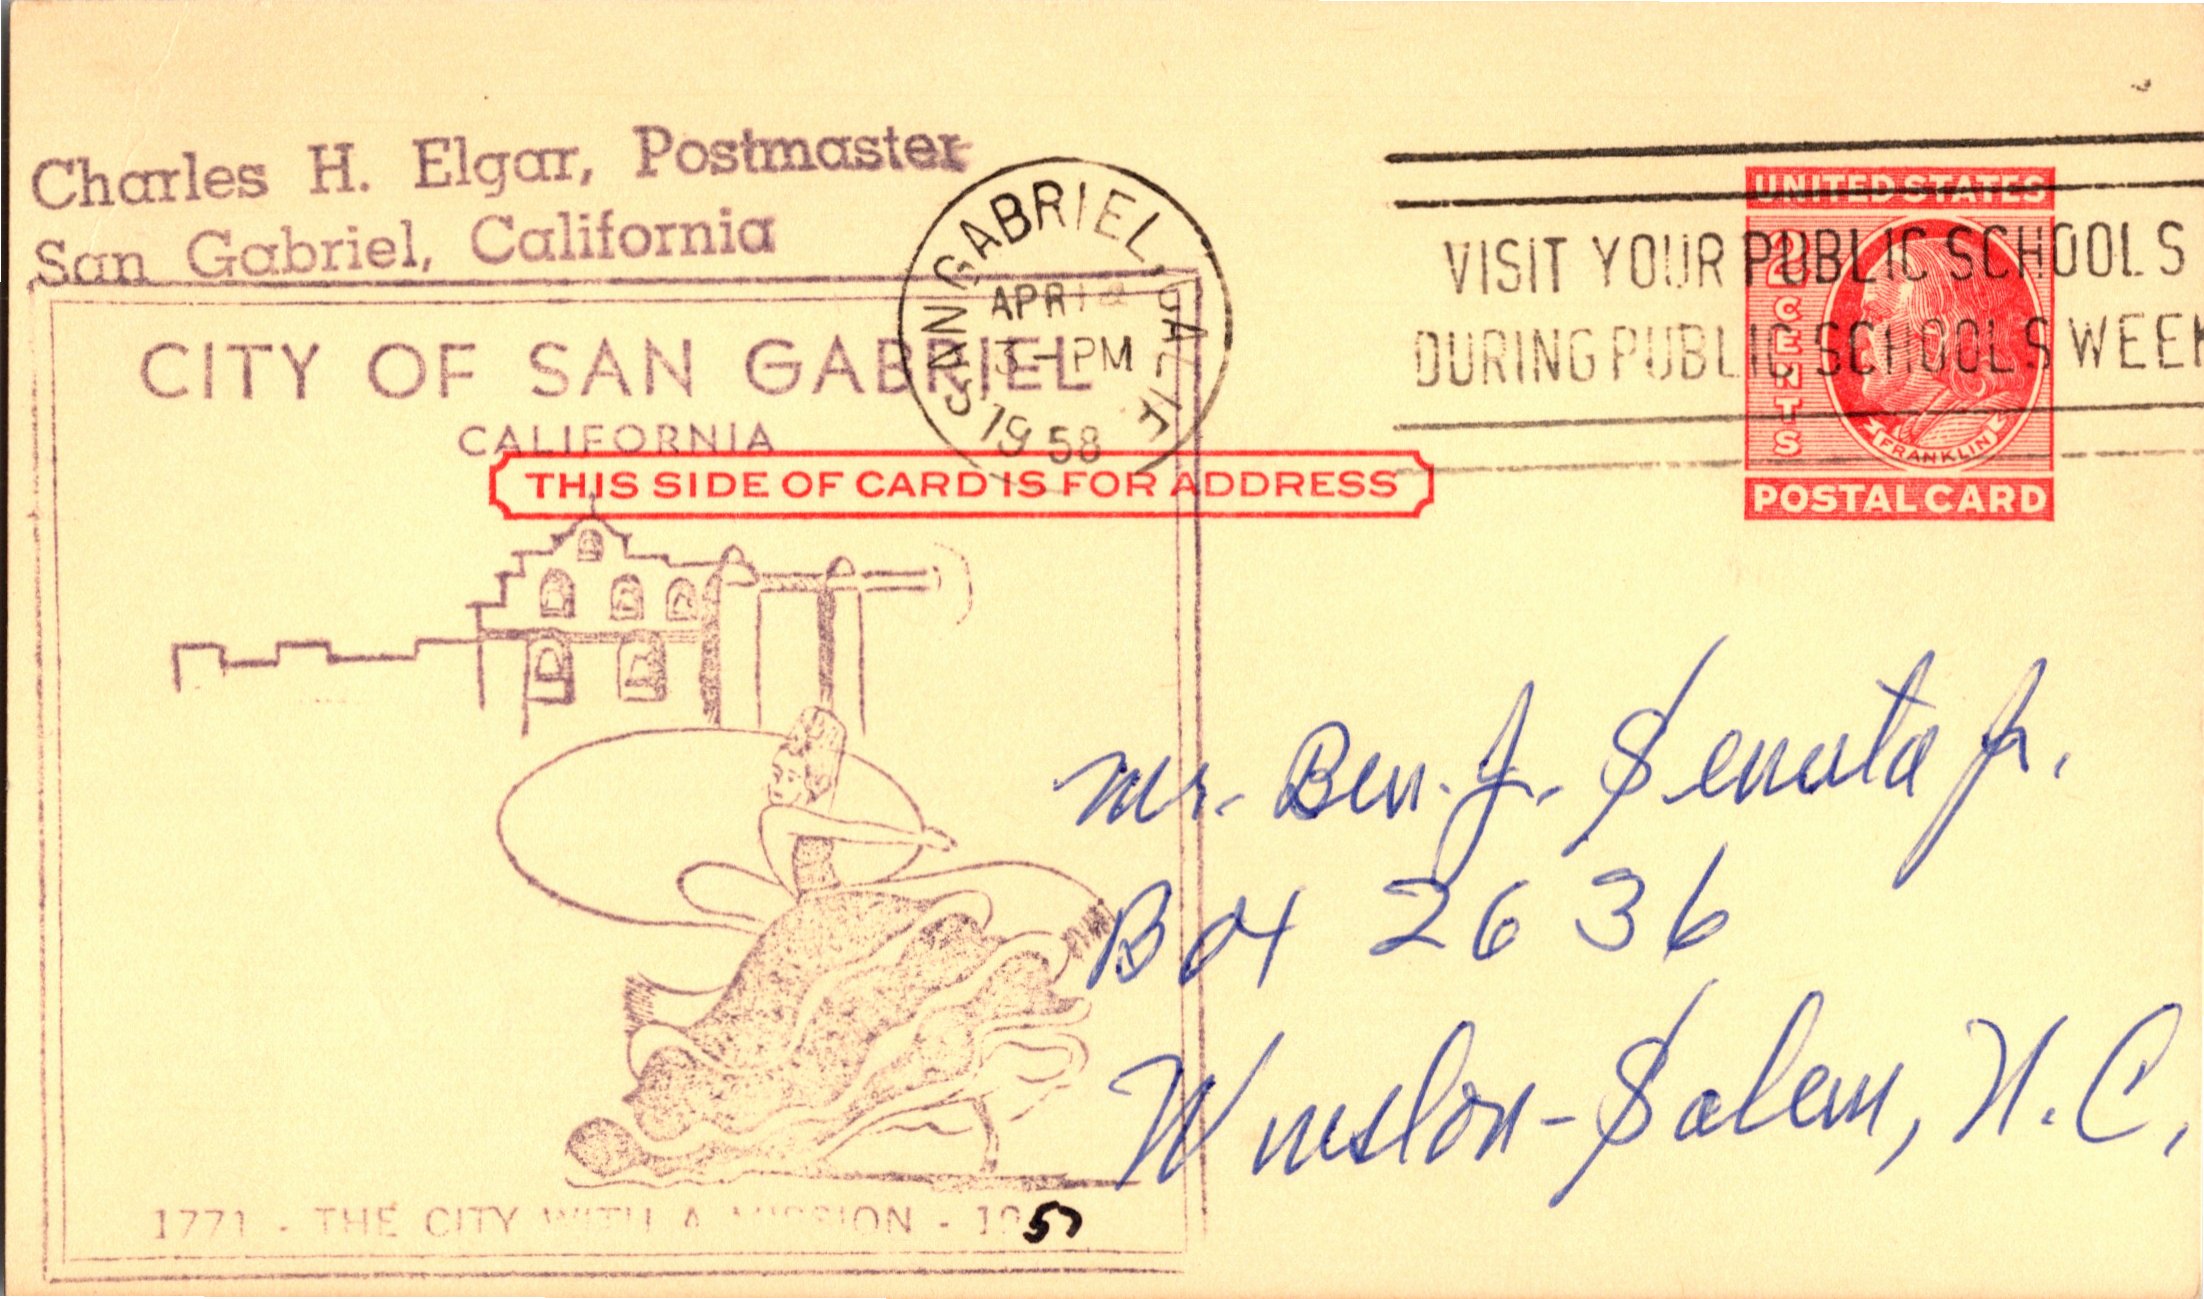 Charles H. Elgar, Postmaster
San Gabriel, California
SAN GABRIEL, CALIF
APR
3 - PM
1958
VISIT YOUR PUBLIC SCHOOLS
DURING PUBLIC SCHOOLS WEEK
UNITED STATES
2 CENTS
FRANKLIN
POSTAL CARD
CITY OF SAN GABRIEL
CALIFORNIA
THIS SIDE OF CARD IS FOR ADDRESS
Mr. Ben. J.
Box 2636
Winston-Salem, N.C.
1771 - THE CITY WITH A MISSION -